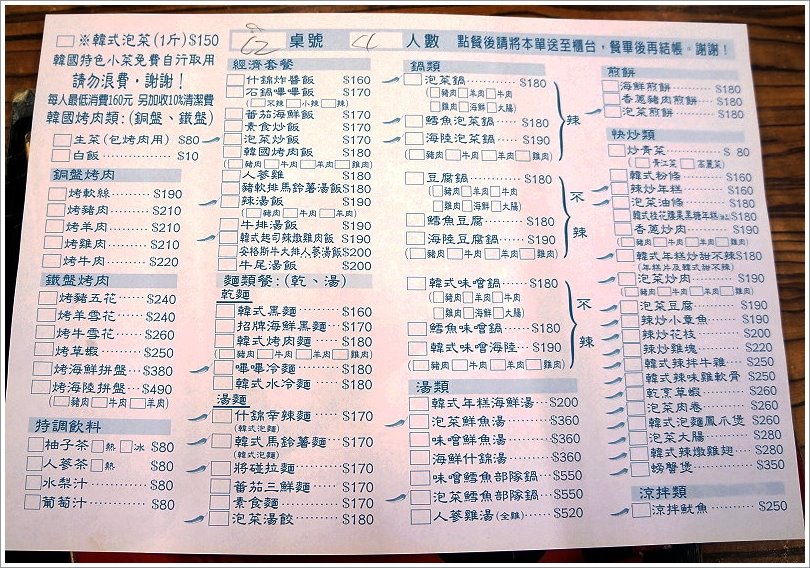 ※韓式泡菜(1斤)$150
韓國特色小菜免費自行取用
請勿浪費,謝謝!
每人最低消費160元 另加收10%清潔費
韓國烤肉類:(銅盤、鐵盤)
生菜(包烤肉用) $80
白飯 $10
銅盤烤肉
烤軟絲 $190
烤豬肉 $210
烤羊肉 $210
烤雞肉 $210
烤牛肉 $220
鐵盤烤肉
烤豬五花 $240
烤羊雪花 $240
烤牛雪花 $260
烤草蝦 $250
烤海鮮拼盤 $380
烤海陸拼盤 $490
(豬肉 牛肉 羊肉)
特調飲料
柚子茶 熱 冰 $80
人蔘茶 熱 $80
水梨汁 $80
葡萄汁 $80
62 桌號 4 人數 點餐後請將本單送至櫃台,餐畢後再結帳。謝謝!
經濟套餐
什錦炸醬飯 $160
石鍋嗶嗶飯 $170
(不辣 小辣 辣)
番茄海鮮飯 $170
素食炒飯 $170
泡菜炒飯 $170
韓國烤肉飯 $180
(豬肉 牛肉 羊肉 雞肉)
人蔘雞 $180
豬軟排馬鈴薯湯飯 $180
辣湯飯 $190
(豬肉 牛肉 羊肉)
牛排湯飯 $190
韓式起司辣燉雞肉飯 $190
安格斯牛大排人蔘湯飯 $200
牛尾湯飯 $200
麵類餐:(乾、湯)
乾麵
韓式黑麵 $160
招牌海鮮黑麵 $170
韓式烤肉麵 $180
(豬肉 牛肉 羊肉 雞肉)
嗶嗶冷麵 $180
韓式水冷麵 $180
湯麵
什錦辛辣麵 $170
(韓式泡麵)
韓式馬鈴薯麵 $170
(韓式泡麵)
將碰拉麵 $170
番茄三鮮麵 $170
素食麵 $170
泡菜湯餃 $180
鍋類
泡菜鍋 $180
(豬肉 羊肉 牛肉
雞肉 海鮮 大腸)
鱈魚泡菜鍋 $180
海陸泡菜鍋 $190
(豬肉 牛肉 羊肉 雞肉)
辣
豆腐鍋 $180
(豬肉 羊肉 牛肉
雞肉 海鮮 大腸)
鱈魚豆腐 $180
海陸豆腐鍋 $190
(豬肉 牛肉 羊肉 雞肉)
不辣
韓式味噌鍋 $180
(豬肉 羊肉 牛肉
雞肉 海鮮 大腸)
鱈魚味噌鍋 $180
韓式味噌海陸 $190
(豬肉 牛肉 羊肉 雞肉)
不辣
湯類
韓式年糕海鮮湯 $200
泡菜鮮魚湯 $360
味噌鮮魚湯 $360
海鮮什錦湯 $360
味噌鱈魚部隊鍋 $550
泡菜鱈魚部隊鍋 $550
人蔘雞湯(全雞) $520
煎餅
海鮮煎餅 $180
香蔥豬肉煎餅 $180
泡菜煎餅 $180
快炒類
炒青菜 $ 80
(青江菜 高麗菜)
韓式粉條 $160
辣炒年糕 $160
泡菜油條 $180
香蔥炒肉 $190
(豬肉 牛肉 羊肉)
韓式年糕炒甜不辣 $180
(年糕片及韓式甜不辣)
泡菜炒肉 $190
(豬肉 牛肉 羊肉 雞肉)
泡菜豆腐 $190
辣炒小章魚 $190
辣炒花枝 $200
辣炒雞塊 $220
韓式辣拌牛雜 $250
韓式辣味雞軟骨 $250
乾烹草蝦 $260
泡菜肉卷 $260
韓式泡麵鳳爪煲 $260
泡菜大腸 $280
韓式辣燉雞翅 $280
螃蟹煲 $350
涼拌類
涼拌魷魚 $250